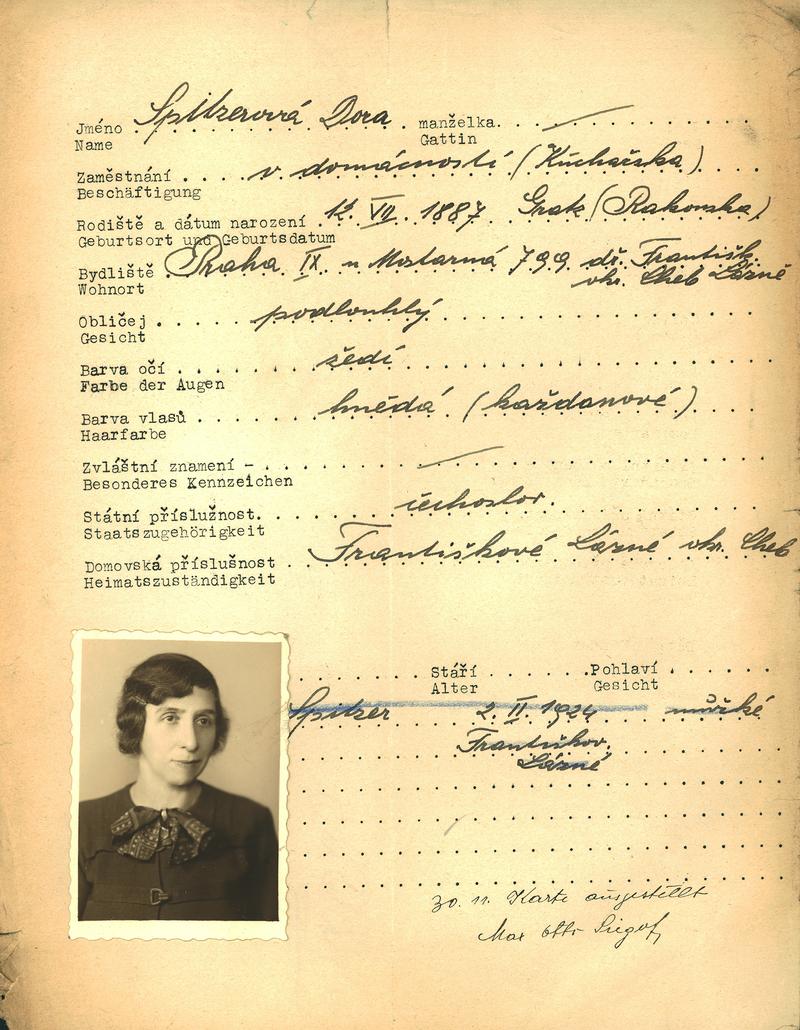 Jméno Spitzerová Dora . manželka.
Name Gattin
Zaměstnání . . . . v domácnosti (Kuchařka)
Beschäftigung
Rodiště a dátum narození . 12. VII. 1887 Gratz (Rakousko)
Geburtsort und Geburtsdatum
Bydliště Praha IX 799 dř. Františk.
Wohnort okr. Cheb Lázně
Obličej . . . . podlouhlý
Gesicht
Barva očí . . . . šedí
Farbe der Augen
Barva vlasů . . . . hnědá (každanové)
Haarfarbe
Zvláštní znamení –
Besonderes Kennzeichen
Státní příslužnost. . . . čechoslov.
Staatszugehörigkeit
Domovská příslušnost . Františkové Lázně okr. Cheb
Heimatszuständigkeit
Stáří . . . . .Pohlaví
Alter Gesicht
Spitzer 2. II. 1924 mužské
Františkov.
Lázně
30. 11. Karte ausgestellt
Max Otto